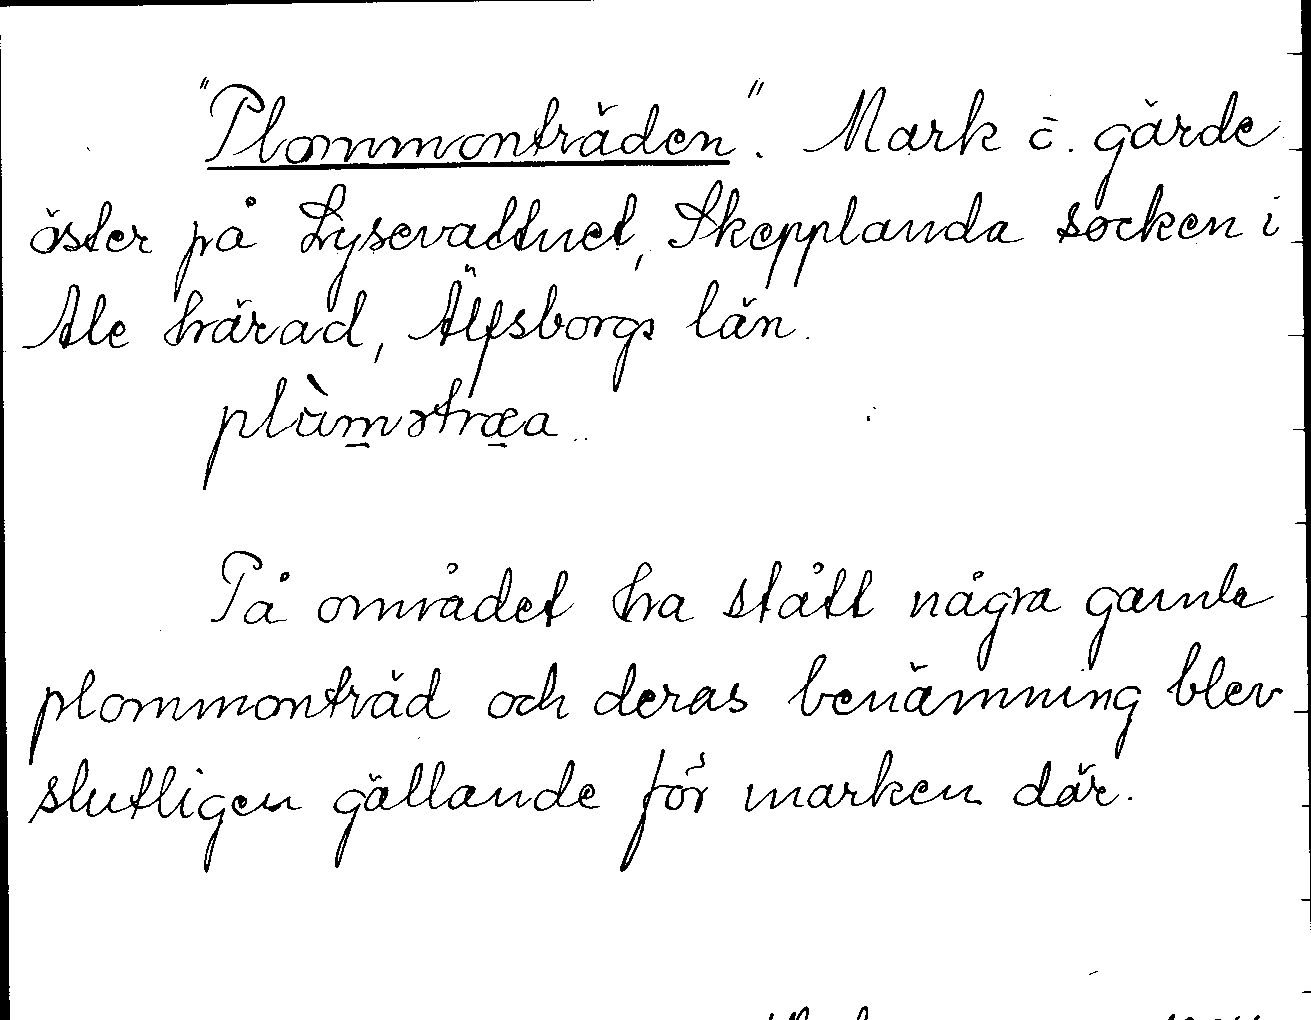 "Plommonträden". Mark o. gärde
öster på Lysevattnet, Skepplanda socken i
Ale härad, Älfsborgs län.
plùm̲ətræ̲a
På området ha stått några gamla
plommonträd och deras benämning blev
slutligen gällande för marken där.